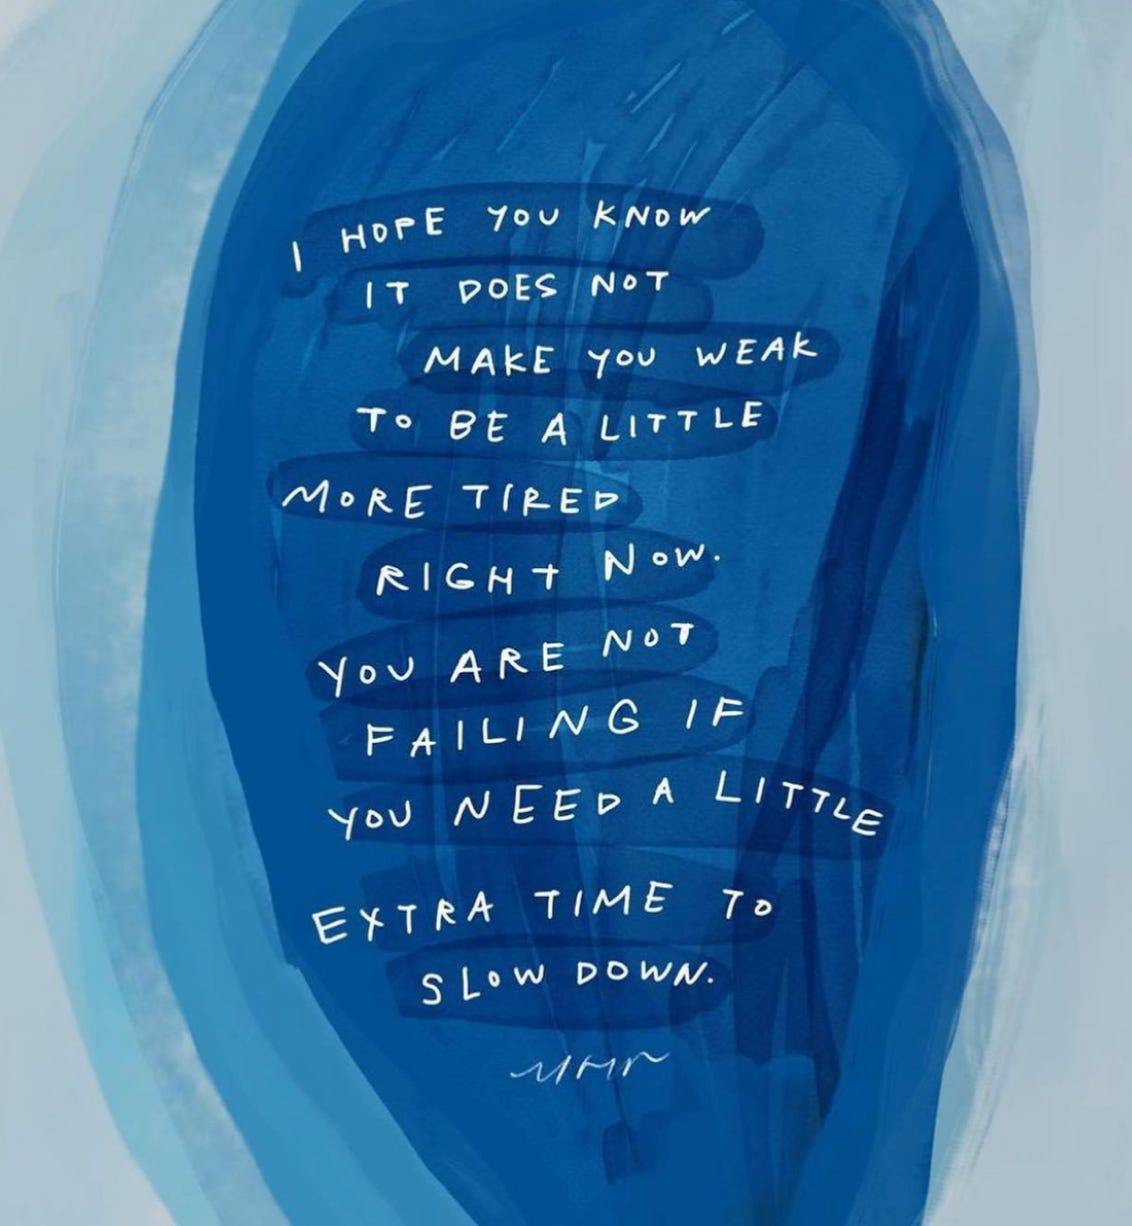 I HOPE YOU KNOW
IT DOES NOT
MAKE YOU WEAK
TO BE A LITTLE
MORE TIRED
RIGHT NOW.
YOU ARE NOT
FAILING IF
YOU NEED A LITTLE
EXTRA TIME TO
SLOW DOWN.
MHN